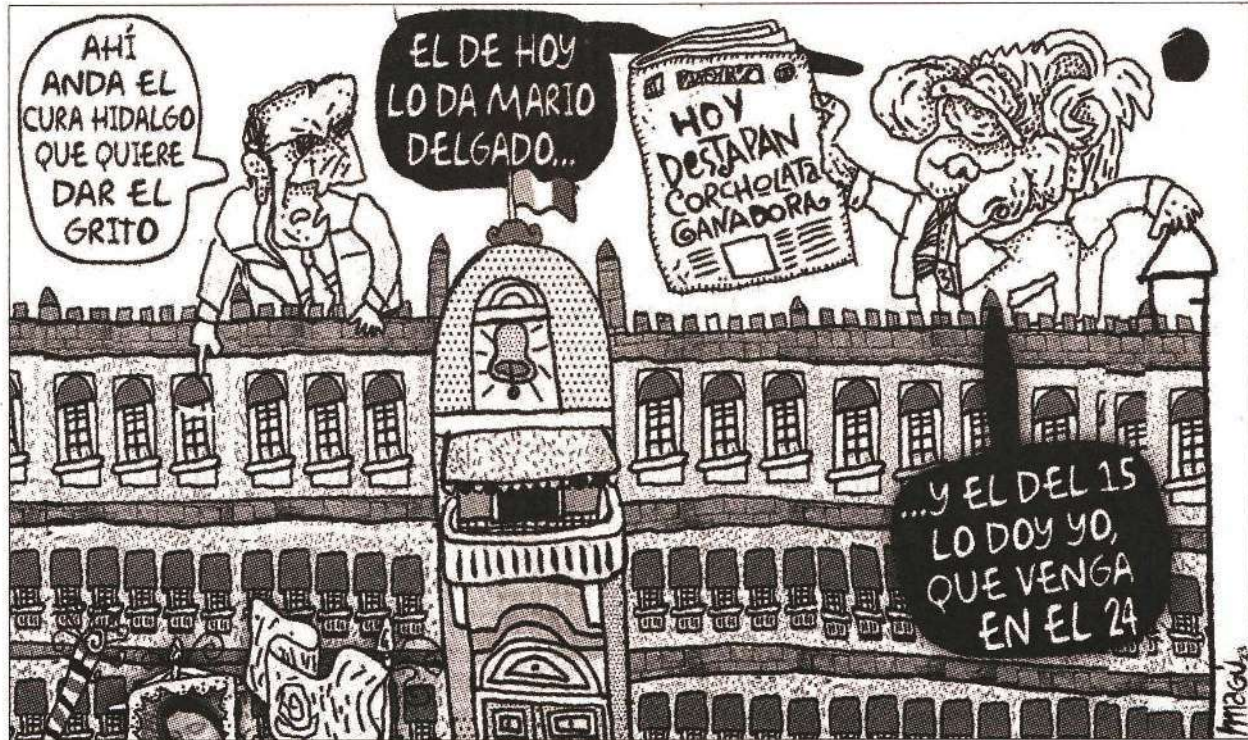 AHÍ
ANDA EL
CURA HIDALGO
QUE QUIERE
DAR EL
GRITO
EL DE HOY
LO DA MARIO
DELGADO...
HOY
DESTAPAN
CORCHOLATA
GANADORA
...Y EL DEL 15
LO DOY YO,
QUE VENGA
EN EL 24
MAGÚ 23